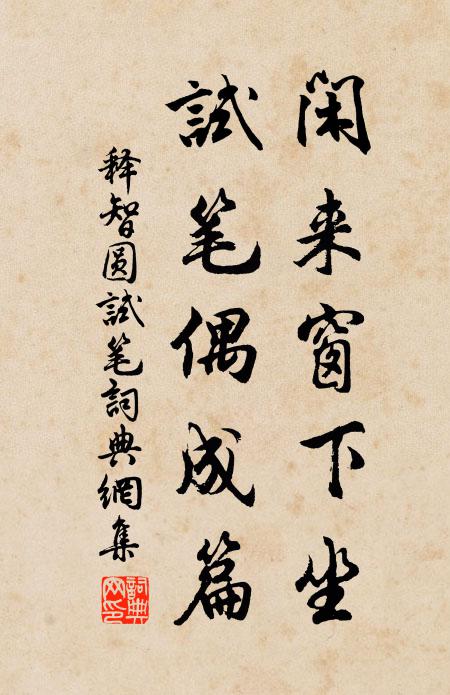 闲来窗下坐
試笔偶成篇
释智圆試笔詞典網集
詞典网印